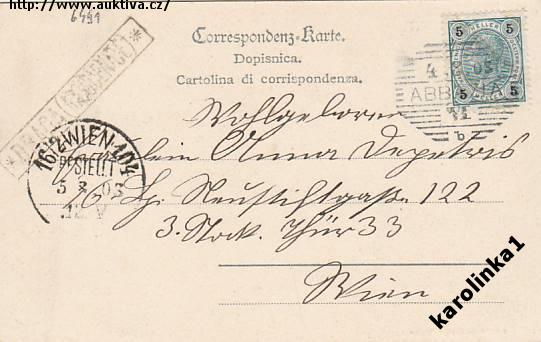 http://www.auktiva.cz/
6491
Correspondenz-Karte.
Dopisnica.
Cartolina di corrispondenza.
5 HELLER 5
5 5
4 03
ABBAZIA
b
16/2 WIEN 104
BESTELLT
5 03
Wohlgeboren
Anna Depetris
Neustiftgasse 122
3. Stock. Thür 33
Wien
karolinka1